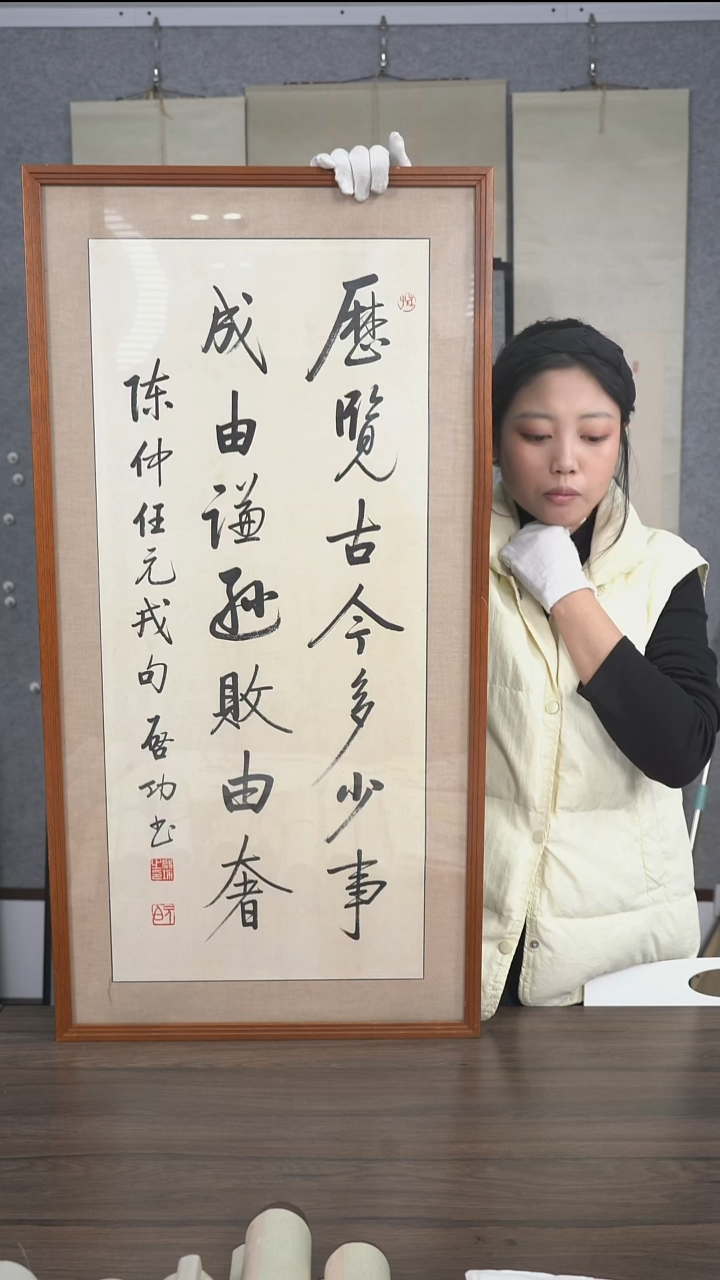 歷覽古今多少事
成由謙遜敗由奢
陈仲任元戎句 啓功书